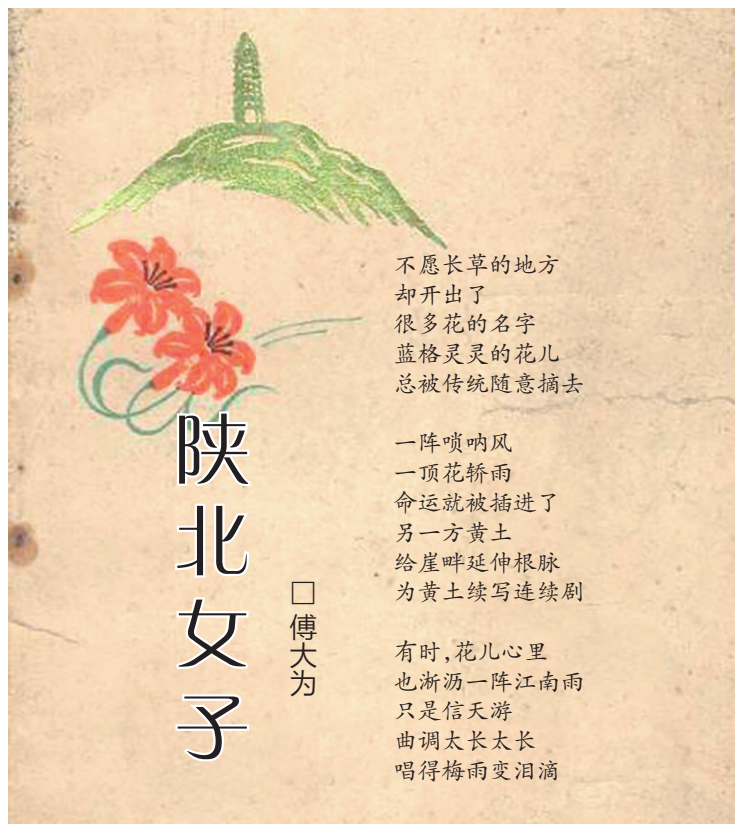 陕北女子
□傅大为
不愿长草的地方
却开出了
很多花的名字
蓝格灵灵的花儿
总被传统随意摘去
一阵唢呐风
一顶花轿雨
命运就被插进了
另一方黄土
给崖畔延伸根脉
为黄土续写连续剧
有时,花儿心里
也淅沥一阵江南雨
只是信天游
曲调太长太长
唱得梅雨变泪滴